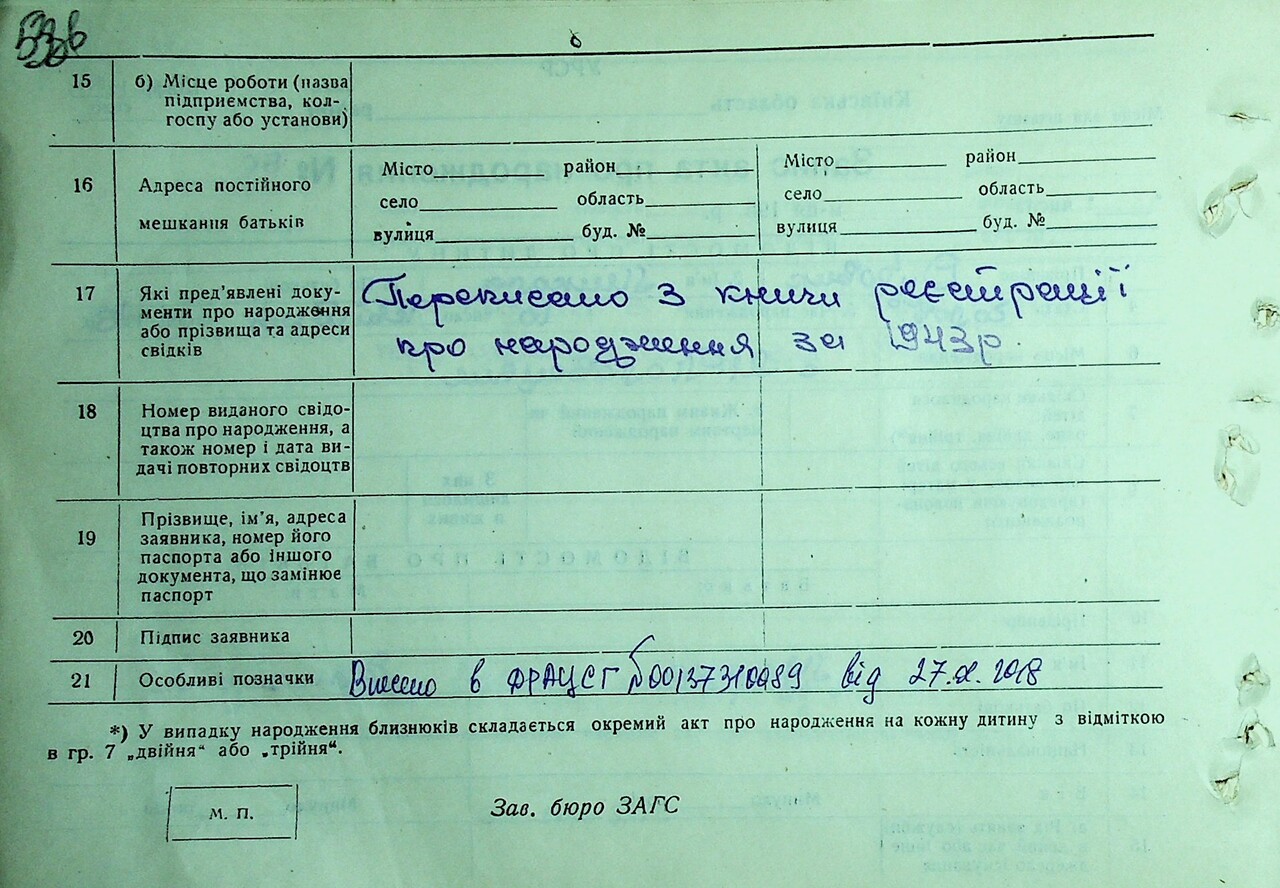 15 б) Місце роботи (назва
підприємства, кол-
госпу або установи)
16 Адреса постійного
мешкання батьків
Місто район
село область
вулиця буд. №
Місто район
село область
вулиця буд. №
17 Які пред’явлені доку-
менти про народження
або прізвища та адреси
свідків
Переписано з книги реєстрації
про народження за 1943р.
18 Номер виданого свідо-
цтва про народження, а
також номер і дата ви-
дачі повторних свідоцтв
19 Прізвище, ім’я, адреса
заявника, номер його
паспорта або іншого
документа, що замінює
паспорт
20 Підпис заявника
21 Особливі позначки Внесено в ФРАЦСГ від 2018
*) У випадку народження близнюків складається окремий акт про народження на кожну дитину з відміткою
в гр. 7 „двійня“ або „трійня“.
М. П.
Зав. бюро ЗАГС